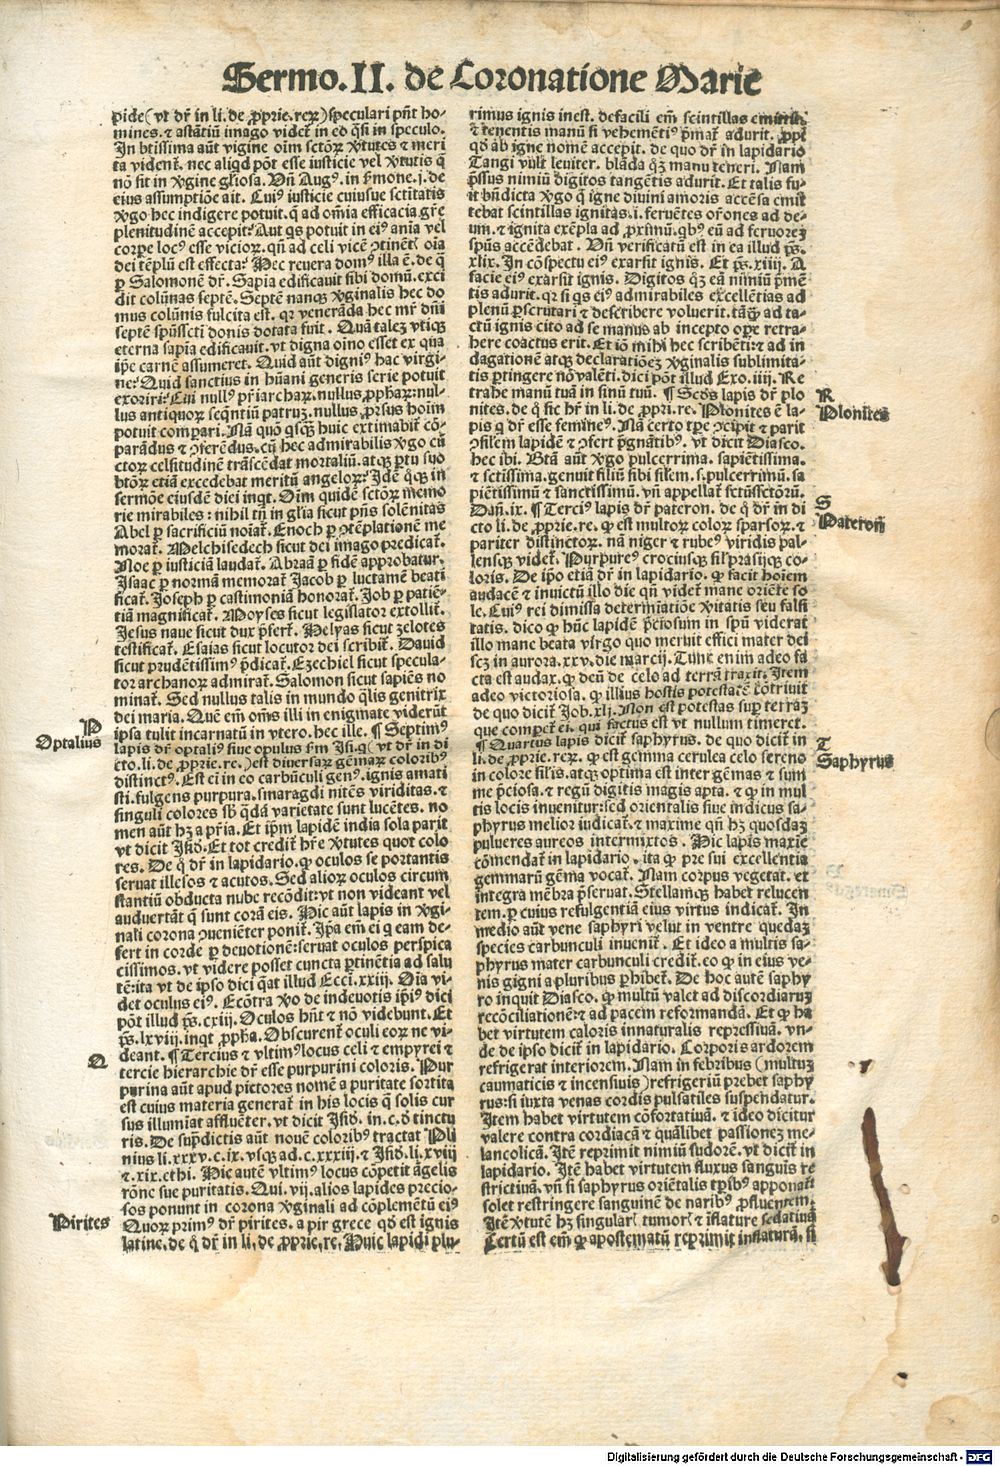 Sermo.II. de Coronatione Marie
pide (vt dr̄ in li. de ꝓprie. reꝝ) speculari pn̄t ho-
mines. ⁊ astātiū imago videt᷑ in eo q̄si in speculo.
In btīssima aūt v̓gine oīm sctōꝝ v̓tutes ⁊ meri
ta vident᷑. nec aliqd pōt esse iusticie vel v̓tutis q̄
nō sit in v̓gine gl̄iosa. Vn̄ Augꝰ. in ẜmone. j. de
eius assumptiōe ait. Cuiꝰ iusticie cuiusue sctītatis
v̓go hec indigere potuit. q̄ ad om̄ia efficacia gr̄e
plenitudinē accepit? Aut qs potuit in eiꝰ aīa vel
corpe locꝰ esse vicioꝝ. qn̄ ad celi vicē ꝯtinēt᷑ oīa
dei tēplū est effecta? Hec reuera domꝰ illa ē. de q̄
ꝑ Salomonē dr̄. Sapīa edificauit sibi domū. exci
dit colūnas septē. Septē nanqꝫ v̓ginalis hec do
mus colūnis fulcita est. qꝛ venerāda hec mr̄ dn̄i
septē spūssctī donis dotata fuit. Quā talez vtiqꝫ
eterna sapīa edificauit. vt digna oīno esset ex qua
ip̄e carnē assumeret. Quid aūt digniꝰ hac virgi-
ne? Quid sanctius in hūani generis serie potuit
exoriri? Cui nullꝰ pr̄iarchaꝝ. nullus ꝓphaꝝ: nul-
lus antiquoꝝ seqn̄tiū patruz. nullus ꝓrsus hoīm
potuit compari. Nā quō qsqꝫ huic extimabit᷑ cō-
parādus ⁊ ꝯferēdus. cū hec admirabilis v̓go cū
ctoꝝ celsitudinē trāscēdat mortaliū. atqꝫ ꝑtu suo
btōꝝ etiā excedebat meritū angeloꝝ? Idē q̊qꝫ in
sermōe eiusdē diei inqt. Oīm quidē sctōꝝ memo
rie mirabiles: nihil tn̄ in gl̄ia sicut pn̄s solēnitas
Abel ꝑ sacrificiū noīat᷑. Enoch ꝑ ꝯtēplationē me
morat᷑. Melchisedech sicut dei imago predicat᷑.
Noe ꝑ iusticiā laudat᷑. Abraā ꝑ fidē approbatur.
Isaac ꝑ normā memorat᷑ Jacob ꝑ luctamē beati
ficat᷑. Joseph ꝑ castimoniā honorat᷑. Job ꝑ patiē-
tiā magnificat᷑. Moyses sicut legislator extollit᷑.
Jesus naue sicut dux p̄fert᷑. Helyas sicut zelotes
testificat᷑. Esaias sicut locutor dei scribit᷑. Dauid
sicut prudētissimꝰ p̄dicat᷑. Ezechiel sicut specula-
tor archanoꝝ admirat᷑. Salomon sicut sapiēs no
minat᷑. Sed nullus talis in mundo q̄lis genitrix
dei maria. Quē em̄ om̄s illi in enigmate viderūt
ipsa tulit incarnatū in vtero. hec ille. ¶ Septimꝰ
lapis dr̄ optaliꝰ siue opulus ẜm Isi. q (vt dr̄ in di
cto. li. de ꝓprie. re.) est diuersaꝝ gēmaꝝ coloribꝰ
distinctꝰ. Est ei in eo carbūculi genꝰ. ignis amati
sti. fulgens purpura. smaragdi nitēs viriditas. ⁊
singuli colores sb̄ q̄dā varietate sunt lucētes. no
men aūt hꝫ a pr̄ia. Et ip̄m lapidē india sola parit
vt dicit Isid̄. Et tot credit᷑ hr̄e v̓tutes quot colo
res. De q̊ dr̄ in lapidario. ꝙ oculos se portantis
seruat illesos ⁊ acutos. Sed alioꝝ oculos circum
stantiū obducta nube recōdit: vt non videant vel
aduertāt q̄ sunt corā eis. Hic aūt lapis in v̓gi-
nali corona ꝯueniēter ponit᷑. Ip̄a em̄ ei q eam de-
fert in corde ꝑ deuotionē: seruat oculos perspica
cissimos. vt videre posset cuncta ꝑtinētia ad salu
tē: ita vt de ipso dici q̄at illud Ecci. xxiij. Oīa vi-
det oculus eiꝰ. Ecōtra v̓o de indeuotis ip̄iꝰ dici
pōt illud ps̄. cxiij. Oculos hn̄t ⁊ nō videbunt. Et
ps̄. lxviij. inqt ꝓpha. Obscurent᷑ oculi eoꝝ ne vi-
deant. ¶ Tercius ⁊ vltimꝰ locus celi ⁊ empyrei ⁊
tercie hierarchie dr̄ esse purpurini coloris. Pur
purina aūt apud pictores nomē a puritate sortita
est cuius materia generat᷑ in his locis q̄ solis cur
sus illumīat affluēter. vt dicit Isid̄. in. c. d̄ tinctu
ris. De sup̄dictis aūt nouē coloribꝰ tractat Pli
nius li. xxxv. c. ix. vsqꝫ ad. c. xxxiij. ⁊ Isid̄. li. xviij
⁊. xix. ethi. Hic autē vltimꝰ locus cōpetit āgelis
rōne sue puritatis. Qui. vij. alios lapides precio-
sos ponunt in corona v̓ginali ad cōplemētū eiꝰ
Quoꝝ primꝰ dr̄ pirites. a pir grece qd̄ est ignis
latine. de q̊ dr̄ in li. de ꝓprie. re. Huic lapidi plu-
P
Optalius
Q
Pirites
rimus ignis inest. defacili em̄ scintillas emittit.
⁊ tenentis manū si vehemētiꝰ p̄mat᷑ adurit. ꝓpt᷑
qd̄ ab igne nomē accepit. de quo dr̄ in lapidario
Tangi vult leuiter. blāda qꝫ manu teneri. Nam
p̄ssus nimiū digitos tangētis adurit. Et talis fu-
it bn̄dicta v̓go q̄ igne diuini amoris accēsa emit
tebat scintillas ignitas. i. feruētes orōnes ad de-
um. ⁊ ignita exēpla ad ꝓximū. qbꝰ eū ad feruorez
spūs accēdebat. Vn̄ verificatū est in ea illud ps̄.
xlix. In cōspectu eiꝰ exarsit ignis. Et ps̄. xiiij. A
facie eiꝰ exarsit ignis. Digitos qꝫ eā nimiū p̄mē
tis adurit. qꝛ si qs eiꝰ admirabiles excellētias ad
plenū ꝑscrutari ⁊ describere voluerit. tāq̄ ad ta-
ctū ignis cito ad se manus ab incepto oꝑe retra-
here coactus erit. Et iō mihi hec scribēti: ⁊ ad in
dagationē atqꝫ declaratiōez v̓ginalis sublimita-
tis ꝑtingere nō valēti. dici pōt illud Exo. iiij. Re
trahe manū tuā in sinū tuū. ¶ Scd̄s lapis dr̄ plo
nites. de q̊ sic hr̄ in li. de ꝓpri. re. Plonites ē la-
pis q dr̄ esse femineꝰ. Nā certo tꝑe ꝯcipit ⁊ parit
ꝯsilem lapidē ⁊ ꝯfert p̄gnātibꝰ. vt dicit Diasco.
hec ibi. Btā aūt v̓go pulcerrima. sapiētissima.
⁊ sctīssima. genuit filiū sibi silem. s. pulcerrimū. sa
piētissimū ⁊ sanctissimū. vn̄ appellat᷑ sctūssctōꝝ.
Dan̄. ix. ¶ Terciꝰ lapis dr̄ pateron. de q̊ dr̄ in di
cto li. de ꝓprie. re. ꝙ est multoꝝ coloꝝ sparsoꝝ. ⁊
pariter distinctoꝝ. nā niger ⁊ rubeꝰ viridis pal-
lensqꝫ videt᷑. Purpureꝰ crociusqꝫ sil prasijqꝫ co-
loris. De ip̄o etiā dr̄ in lapidario. ꝙ facit hoīem
audacē ⁊ inuictū illo die qn̄ videt᷑ mane oriēte so
le. Cuiꝰ rei dimissa determīatiōe v̓itatis seu falsi
tatis. dico ꝙ hūc lapidē p̄ciosum in spū viderat
illo mane beata virgo quo meruit effici mater dei
scꝫ in aurora. xxv. die marcij. Tunc enim adeo fa
cta est audax. ꝙ deū de celo ad terrā traxit. Item
adeo victoriosa. ꝙ illius hostis potestatē cōtriuit
de quo dicit᷑ Job. xlj. Non est potestas suꝑ terraz
que comꝑet᷑ ei. qui factus est vt nullum timeret.
¶ Quartus lapis dicit᷑ saphyrus. de quo dicit᷑ in
li. de ꝓprie. reꝝ. ꝙ est gemma cerulea celo sereno
in colore silis. atqꝫ optima est inter gēmas ⁊ sum
me p̄ciosa. ⁊ regū digitis magis apta. ⁊ ꝙ in mul
tis locis inuenitur: sed orientalis siue indicus sa-
phyrus melior iudicat᷑. ⁊ maxime qn̄ hꝫ quosdaz
pulueres aureos intermixtos. Hic lapis maxīe
cōmendat᷑ in lapidario. ita ꝙ pre sui excellentia
gemmarū gēma vocat᷑. Nam corpus vegetat. et
integra mēbra p̄seruat. Stellamqꝫ habet relucen
tem. ꝑ cuius refulgentiā eius virtus indicat᷑. In
medio aūt vene saphyri velut in ventre quedaz
species carbunculi inuenit᷑. Et ideo a multis sa-
phyrus mater carbunculi credit᷑. eo ꝙ in eius ve-
nis gigni a pluribus ꝑhibet᷑. De hoc autē saphy
ro inquit Diasco. ꝙ multū valet ad discordiaruz
recōciliationē: ⁊ ad pacem reformandā. Et ꝙ ha
bet virtutem caloris innaturalis repressiuā. vn-
de de ipso dicit᷑ in lapidario. Corporis ardorem
refrigerat interiorem. Nam in febribus (multuz
caumaticis ⁊ incensiuis) refrigeriū prebet saphy
rus: si iuxta venas cordis pulsatiles suspendatur.
Item habet virtutem cōfortatiuā. ⁊ ideo dicitur
valere contra cordiacā ⁊ quālibet passionez me-
lancolicā. Itē reprimit nimiū sudorē. vt dicit᷑ in
lapidario. Itē habet virtutem fluxus sanguīs re
strictiuā. vn̄ si saphyrus oriētalis tꝑsbꝰ apponat᷑
solet restringere sanguinē de naribꝰ ꝓfluentem.
Itē v̓tutē hꝫ singularē tumorē ⁊ īflature sedatiuā
Certū est em̄ ꝙ apostematū reprimit inflaturā. si
R
Plonites
S
Pateron
T
Saphyrus
Digitalisierung gefördert durch die Deutsche Forschungsgemeinschaft - DFG